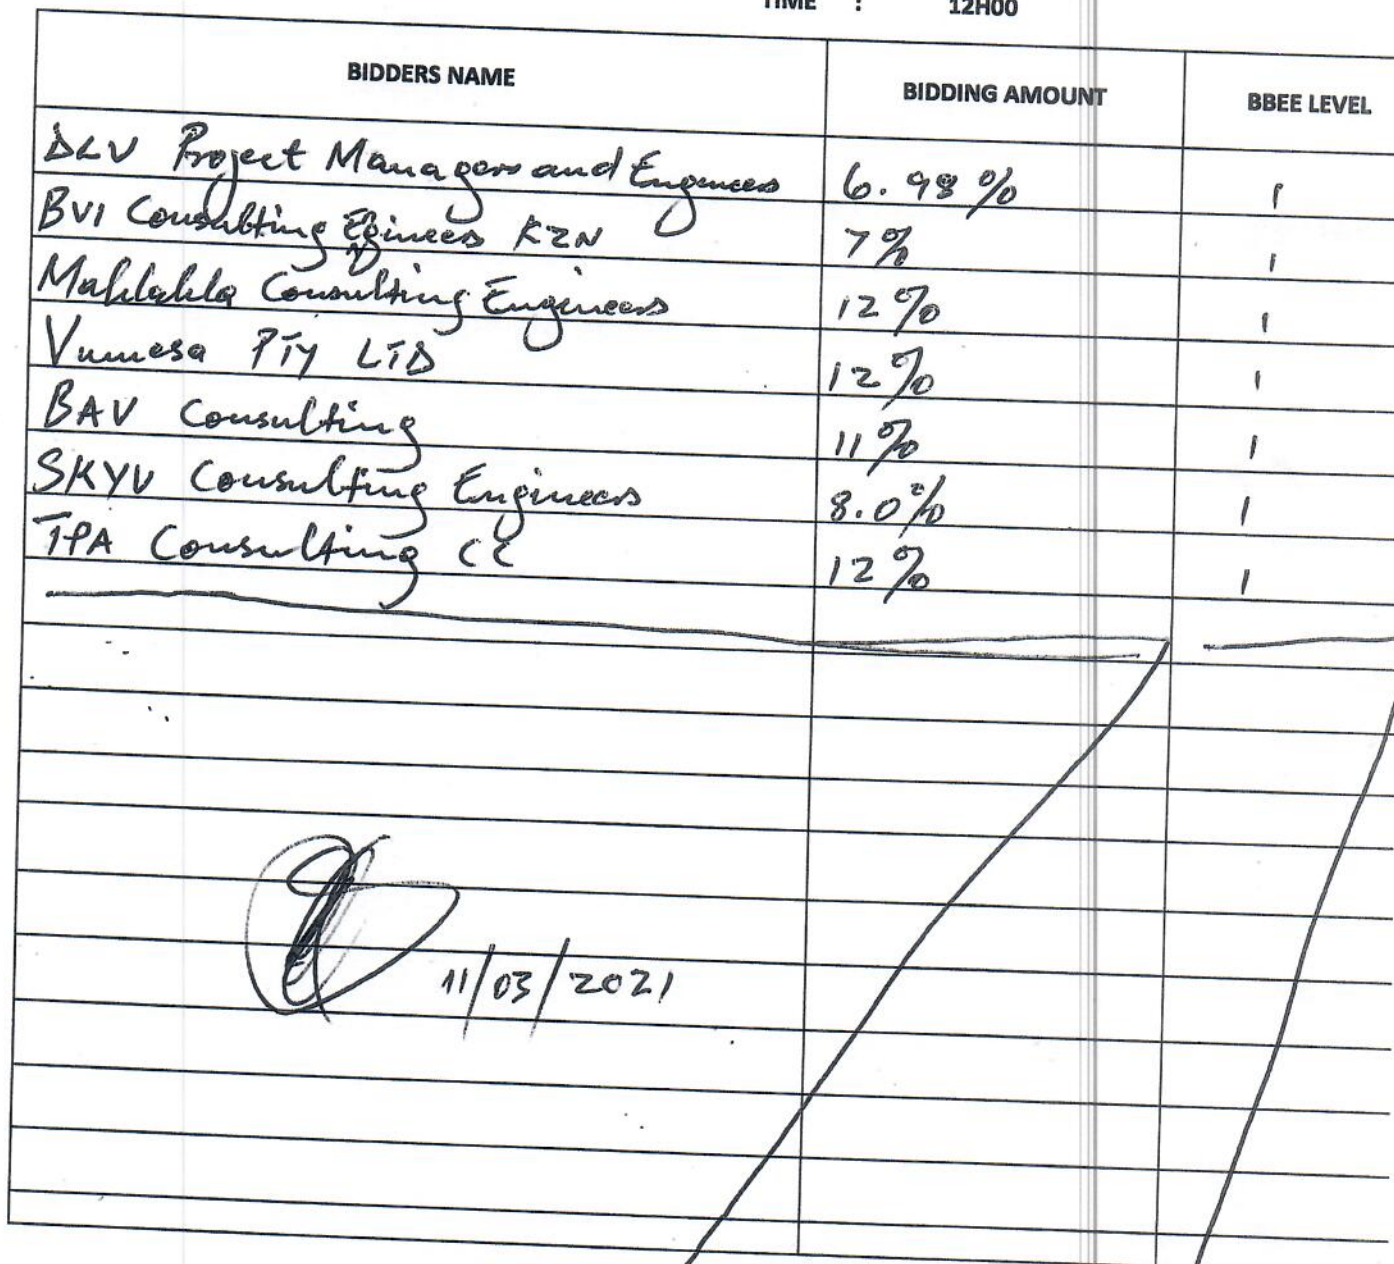 TIME : 12H00
BIDDERS NAME BIDDING AMOUNT BBEE LEVEL
DLV Project Managers and Engineers 6.98% 1
BVI Consulting Egineers KZN 7% 1
Mahlahla Consulting Engineers 12% 1
Vumesa PTY LTD 12% 1
BAV Consulting 11% 1
SKYV Consulting Engineers 8.0% 1
TPA Consulting CC 12% 1
11/03/2021